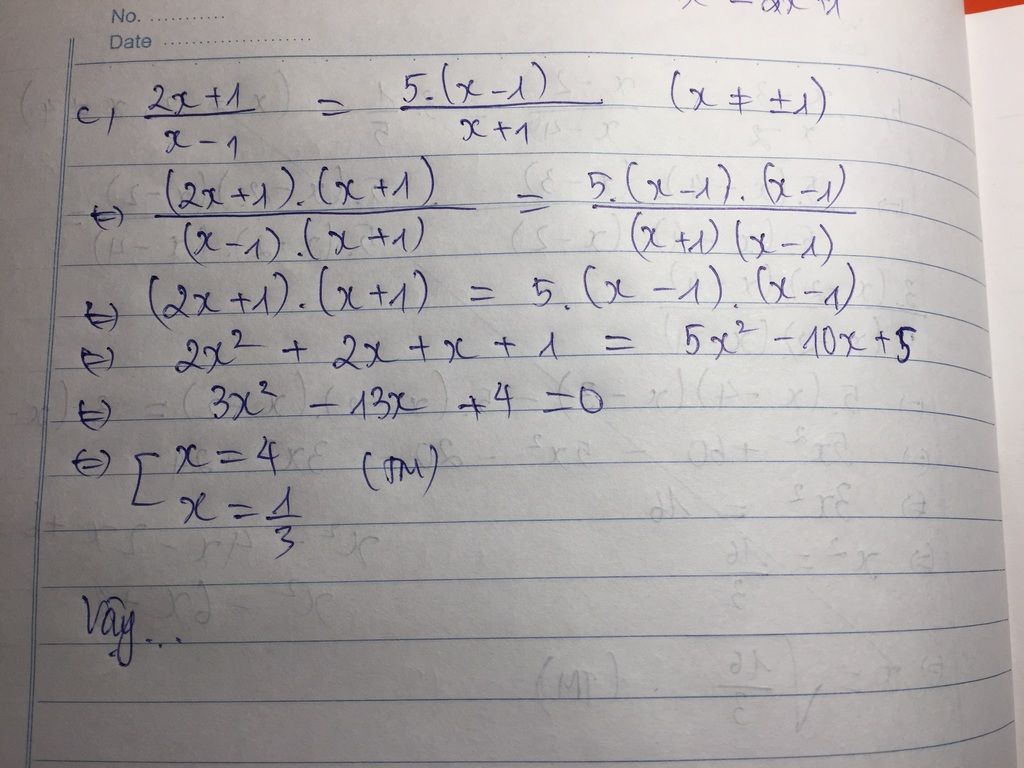 No. ...........
Date ......................
c, (2x+1)/(x-1) = 5.(x-1)/(x+1) (x ≠ ±1)
⇔ (2x+1).(x+1)/(x-1).(x+1) = 5.(x-1).(x-1)/(x+1)(x-1)
⇔ (2x+1).(x+1) = 5.(x-1).(x-1)
⇔ 2x² + 2x + x + 1 = 5x² - 10x + 5
⇔ 3x² - 13x + 4 = 0
⇔ [ x = 4 (TM)
x = 1/3
Vậy...